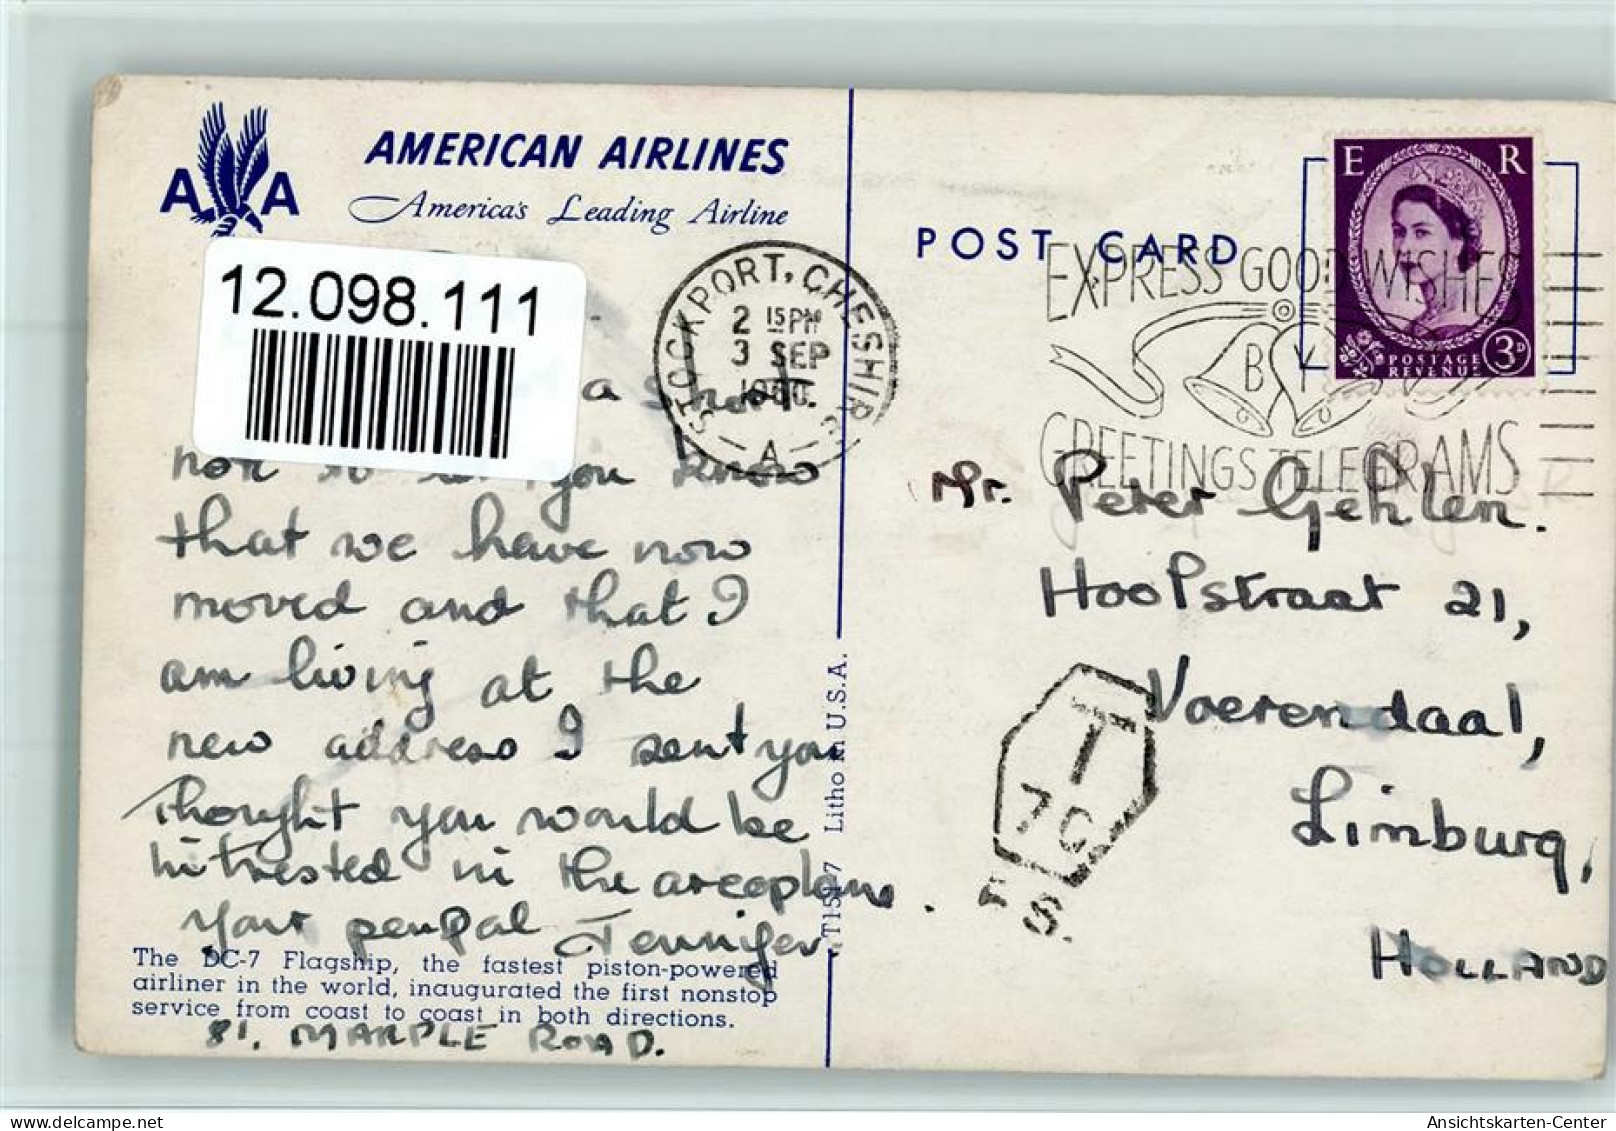 A A
AMERICAN AIRLINES
America's Leading Airline
12.098.111
a short
not so let you know
that we have now
moved and that I
am living at the
new address I sent you
thought you would be
intrested in the areoplane.
your penpal Jennifer
The DC-7 Flagship, the fastest piston-powered
airliner in the world, inaugurated the first nonstop
service from coast to coast in both directions.
81, MARPLE ROAD.
T15 7 Litho in U.S.A.
STOCKPORT, CHESHIRE
2 15 PM
3 SEP
1960
A
POST CARD
E R
POSTAGE
REVENUE
3D
EXPRESS GOOD WISHES
BY
GREETINGS TELEGRAMS
Mr. Peter Gehlen.
Hoofstraat 21,
Voerendaal,
Limburg,
HOLLAND
T
7 C
S.
Ansichtskarten-Center